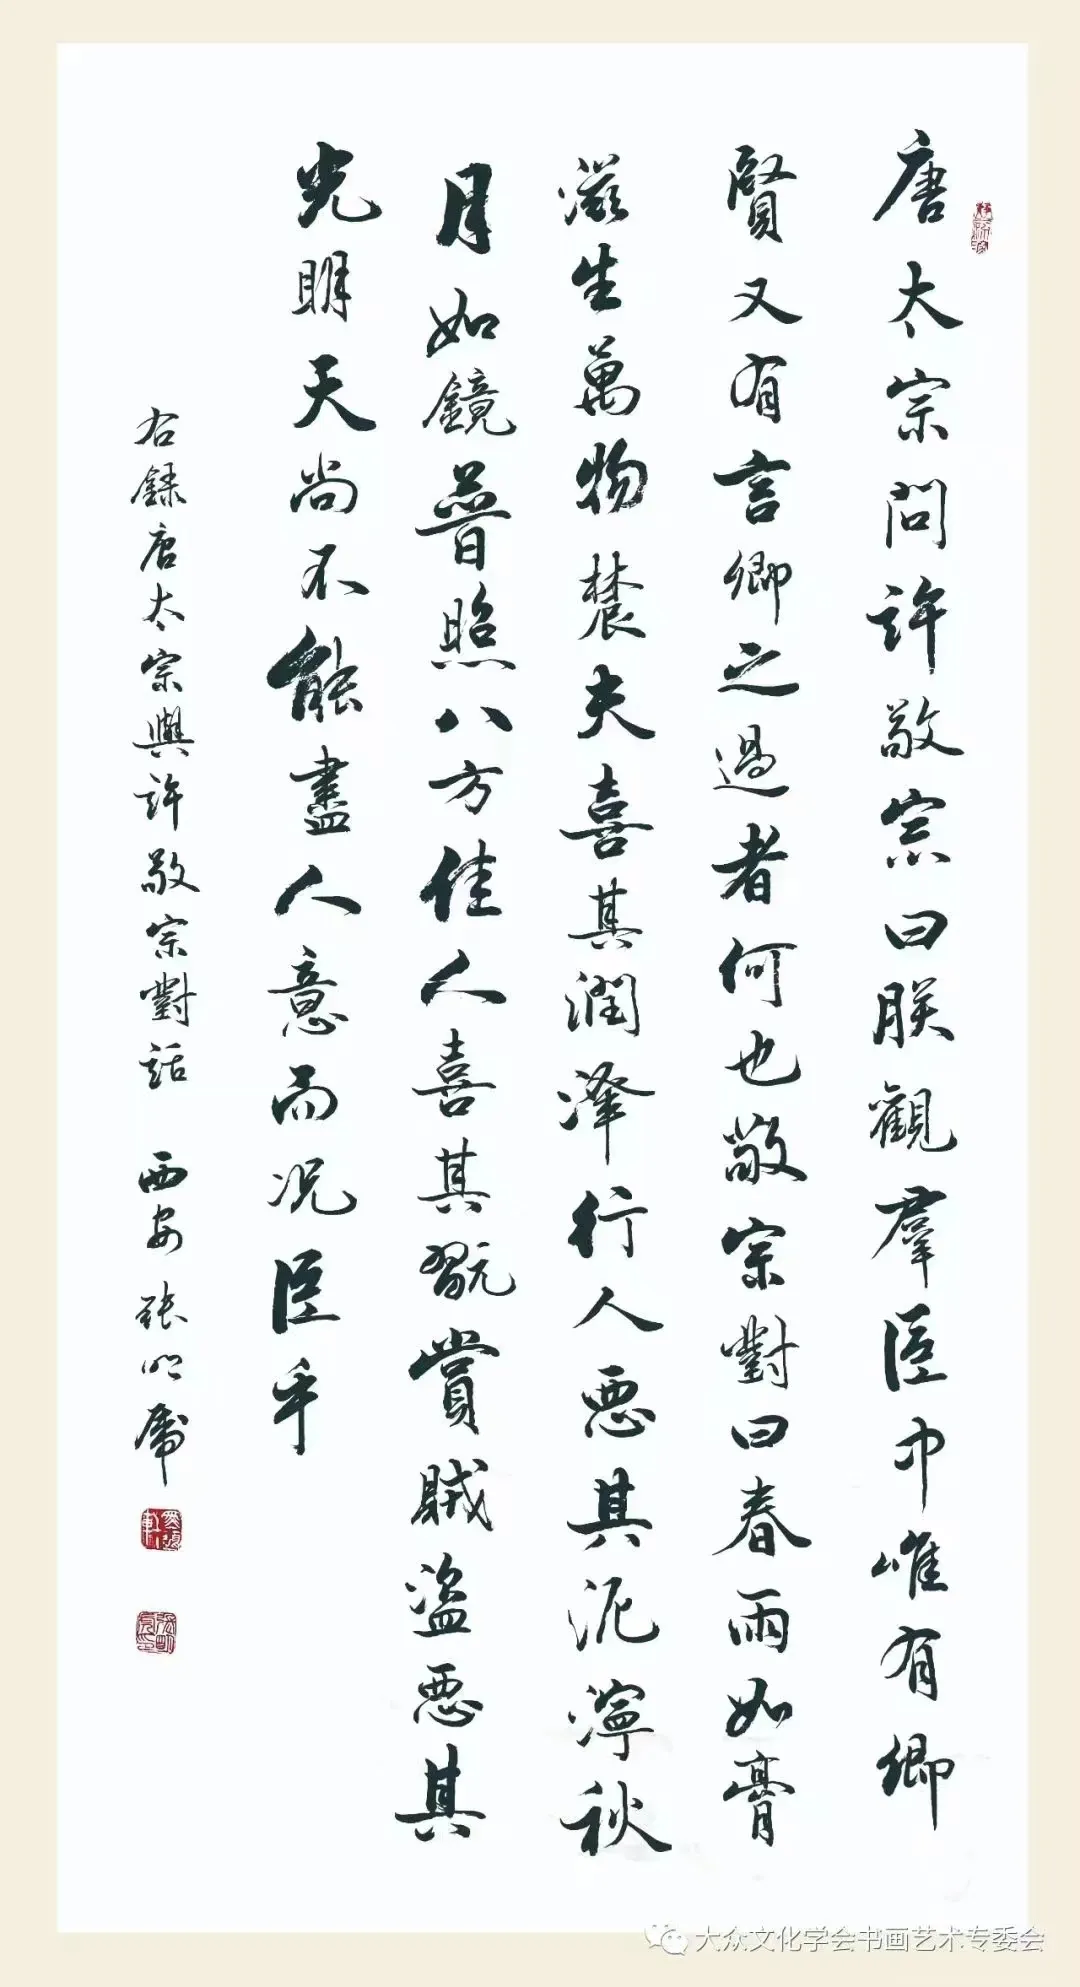 唐太宗問許敬宗曰朕觀羣臣中唯有卿
賢又有言卿之過者何也敬宗對曰春雨如膏
滋生萬物農夫喜其潤澤行人惡其泥濘秋
月如鏡普照八方佳人喜其翫賞賊盜惡其
光明天尚不能盡人意而况臣乎
右録唐太宗與許敬宗對話 西安 張明虎
大众文化学会书画艺术专委会